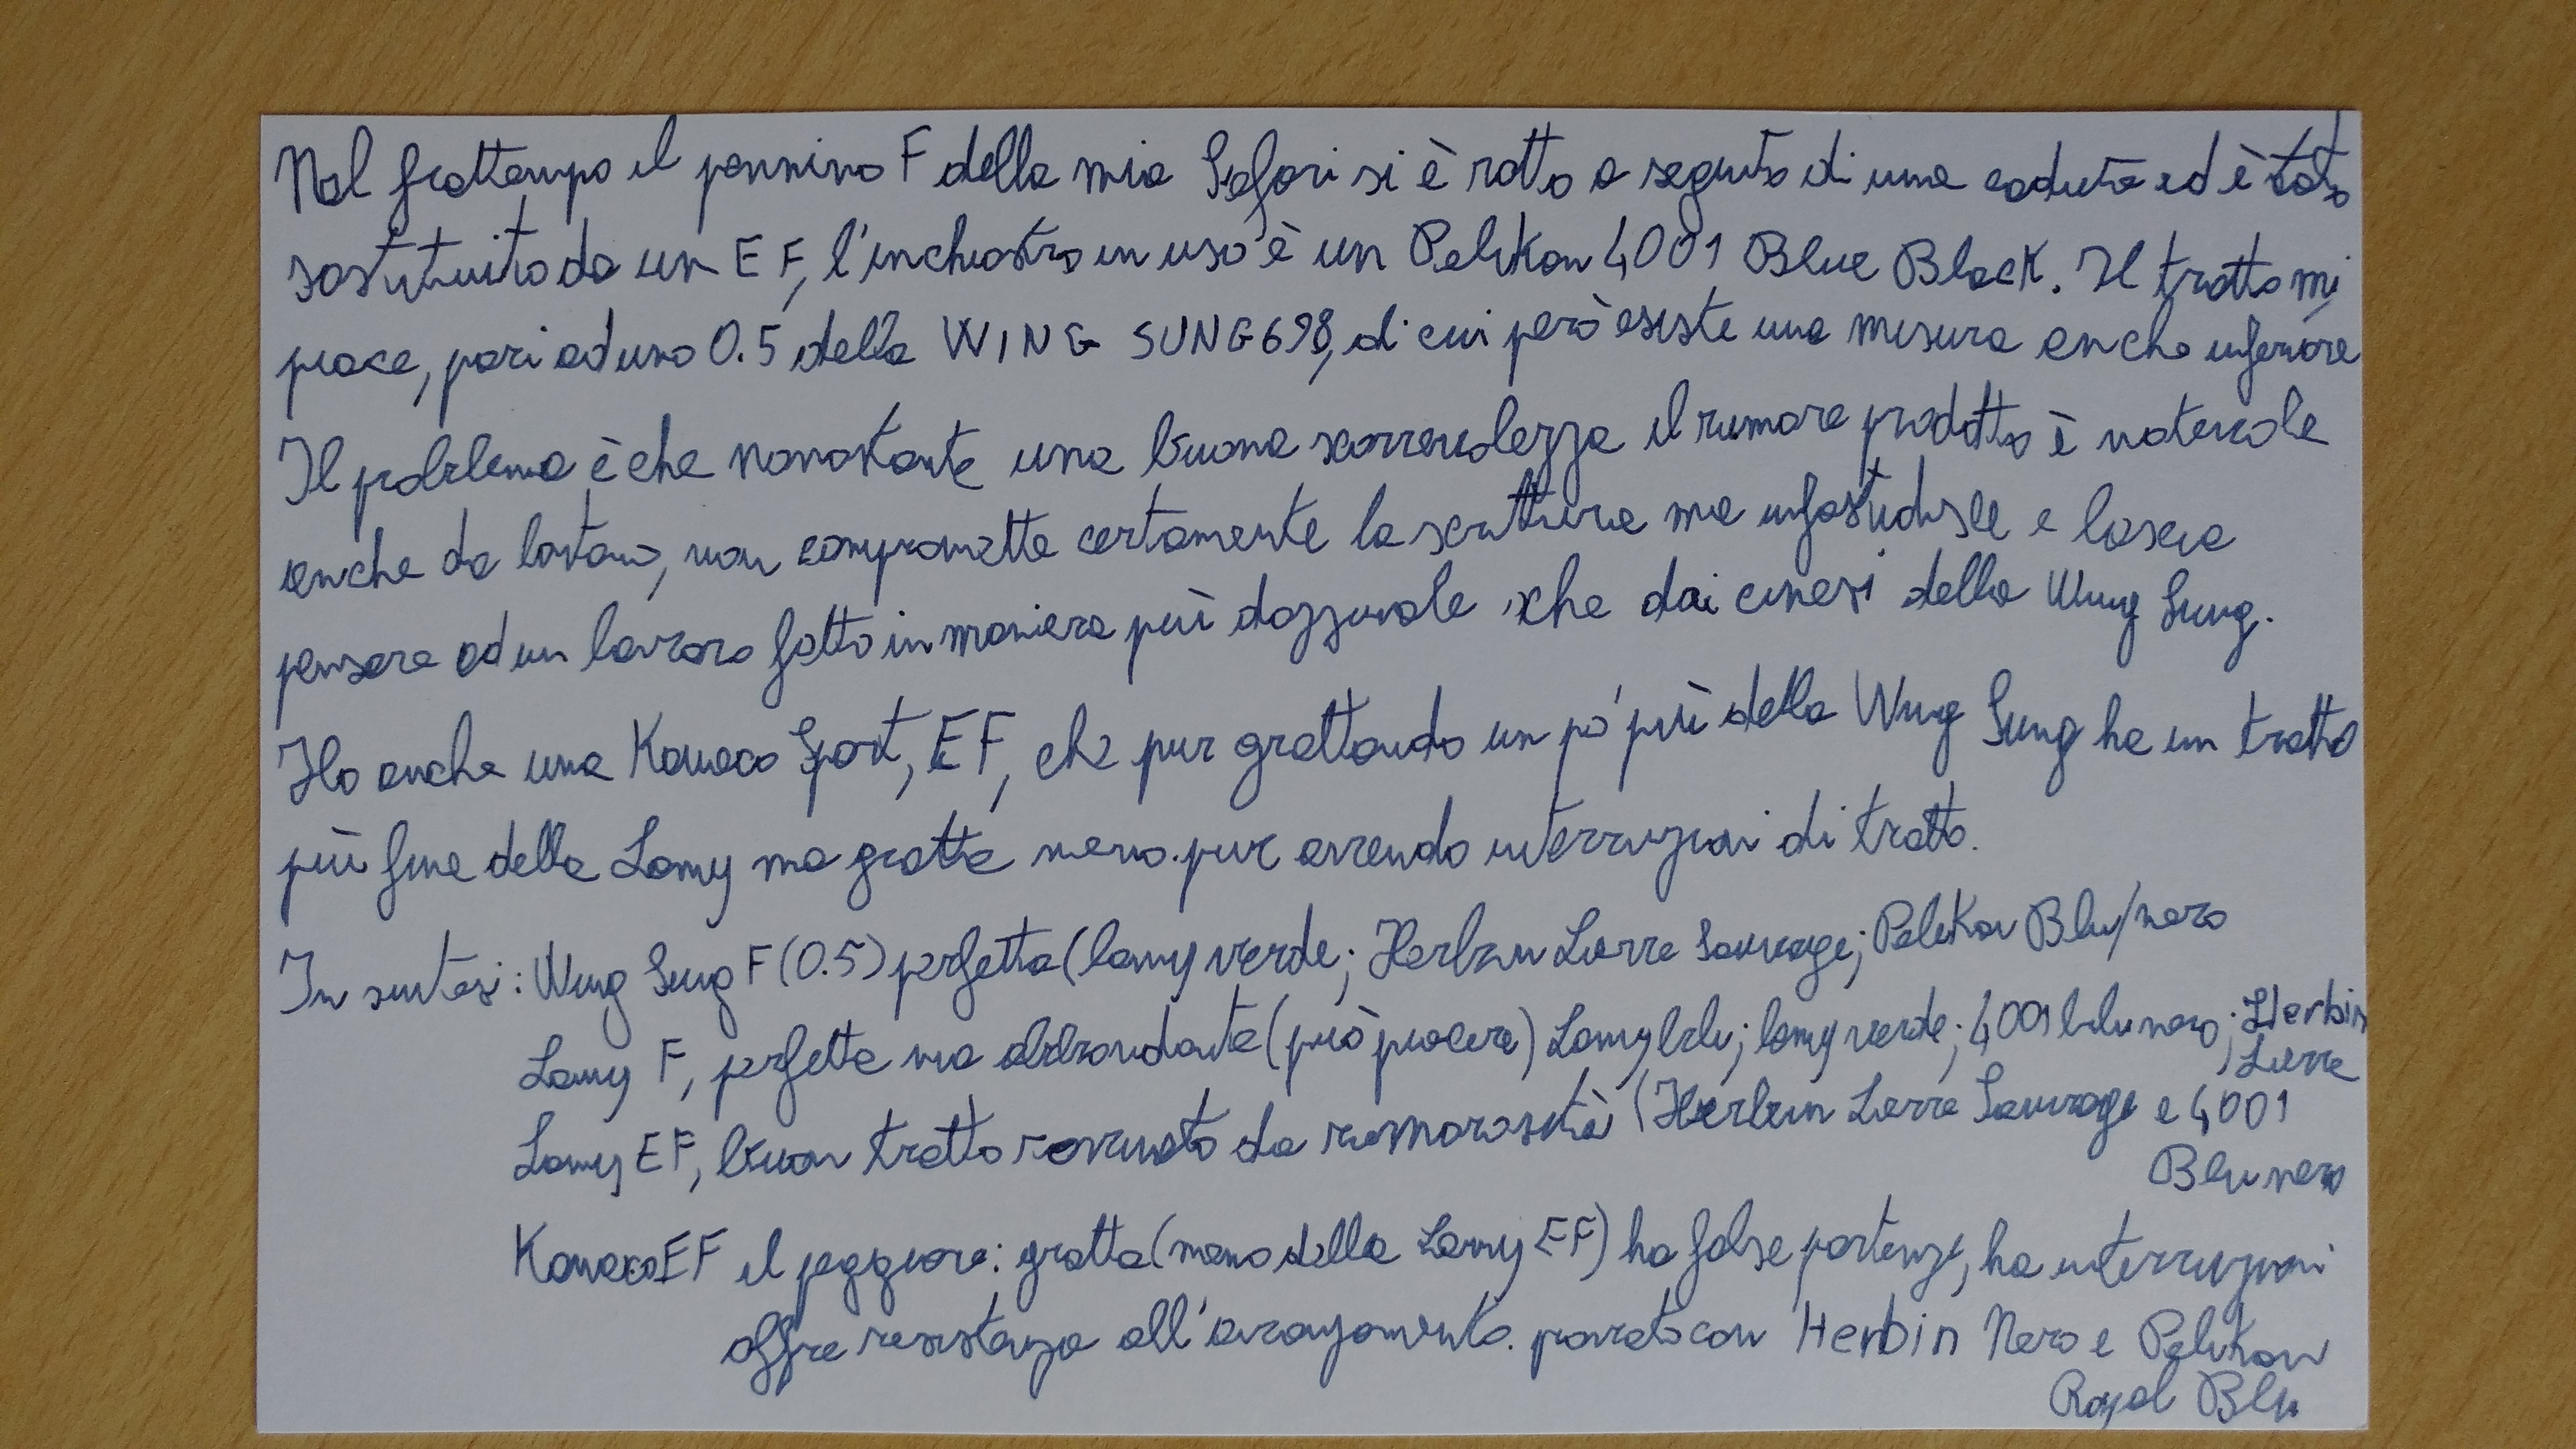 Nel frattempo il pennino F della mia Safari si è rotto a seguito di una caduta ed è stato
sostituito da un EF, l'inchiostro in uso è un Pelikan 4001 Blue Black. Il tratto mi
piace, pari ad uno 0.5 della WING SUNG 698, di cui però esiste una misura anche inferiore
Il problema è che nonostante una buona scorrevolezza il rumore prodotto è notevole
anche da lontano, non compromette certamente la scrittura ma infastidisce e lascia
pensare ad un lavoro fatto in maniera più dozzinale che dai cinesi della Wing Sung.
Ho anche una Kaweco Sport, EF, che pur grattando un po' più della Wing Sung ha un tratto
più fine della Lamy ma gratta meno. pur avendo interruzioni di tratto.
In sintesi: Wing Sung F (0.5) perfetta (lamy verde; Herbin Lierre Sauvage; Pelikan Blu/nero
Lamy F, perfetta ma abbondante (può piacere) Lamy blu; lamy verde; 4001 blu nero; Herbin
Lierre
Lamy EF, buon tratto rovinato da rumorosità (Herbin Lierre Sauvage e 4001
Blu nero
Kaweco EF il peggiore: gratta (meno della Lamy EF) ha false partenze, ha interruzioni
offre resistenza all'avanzamento. provato con Herbin Nero e Pelikan
Royal Blu